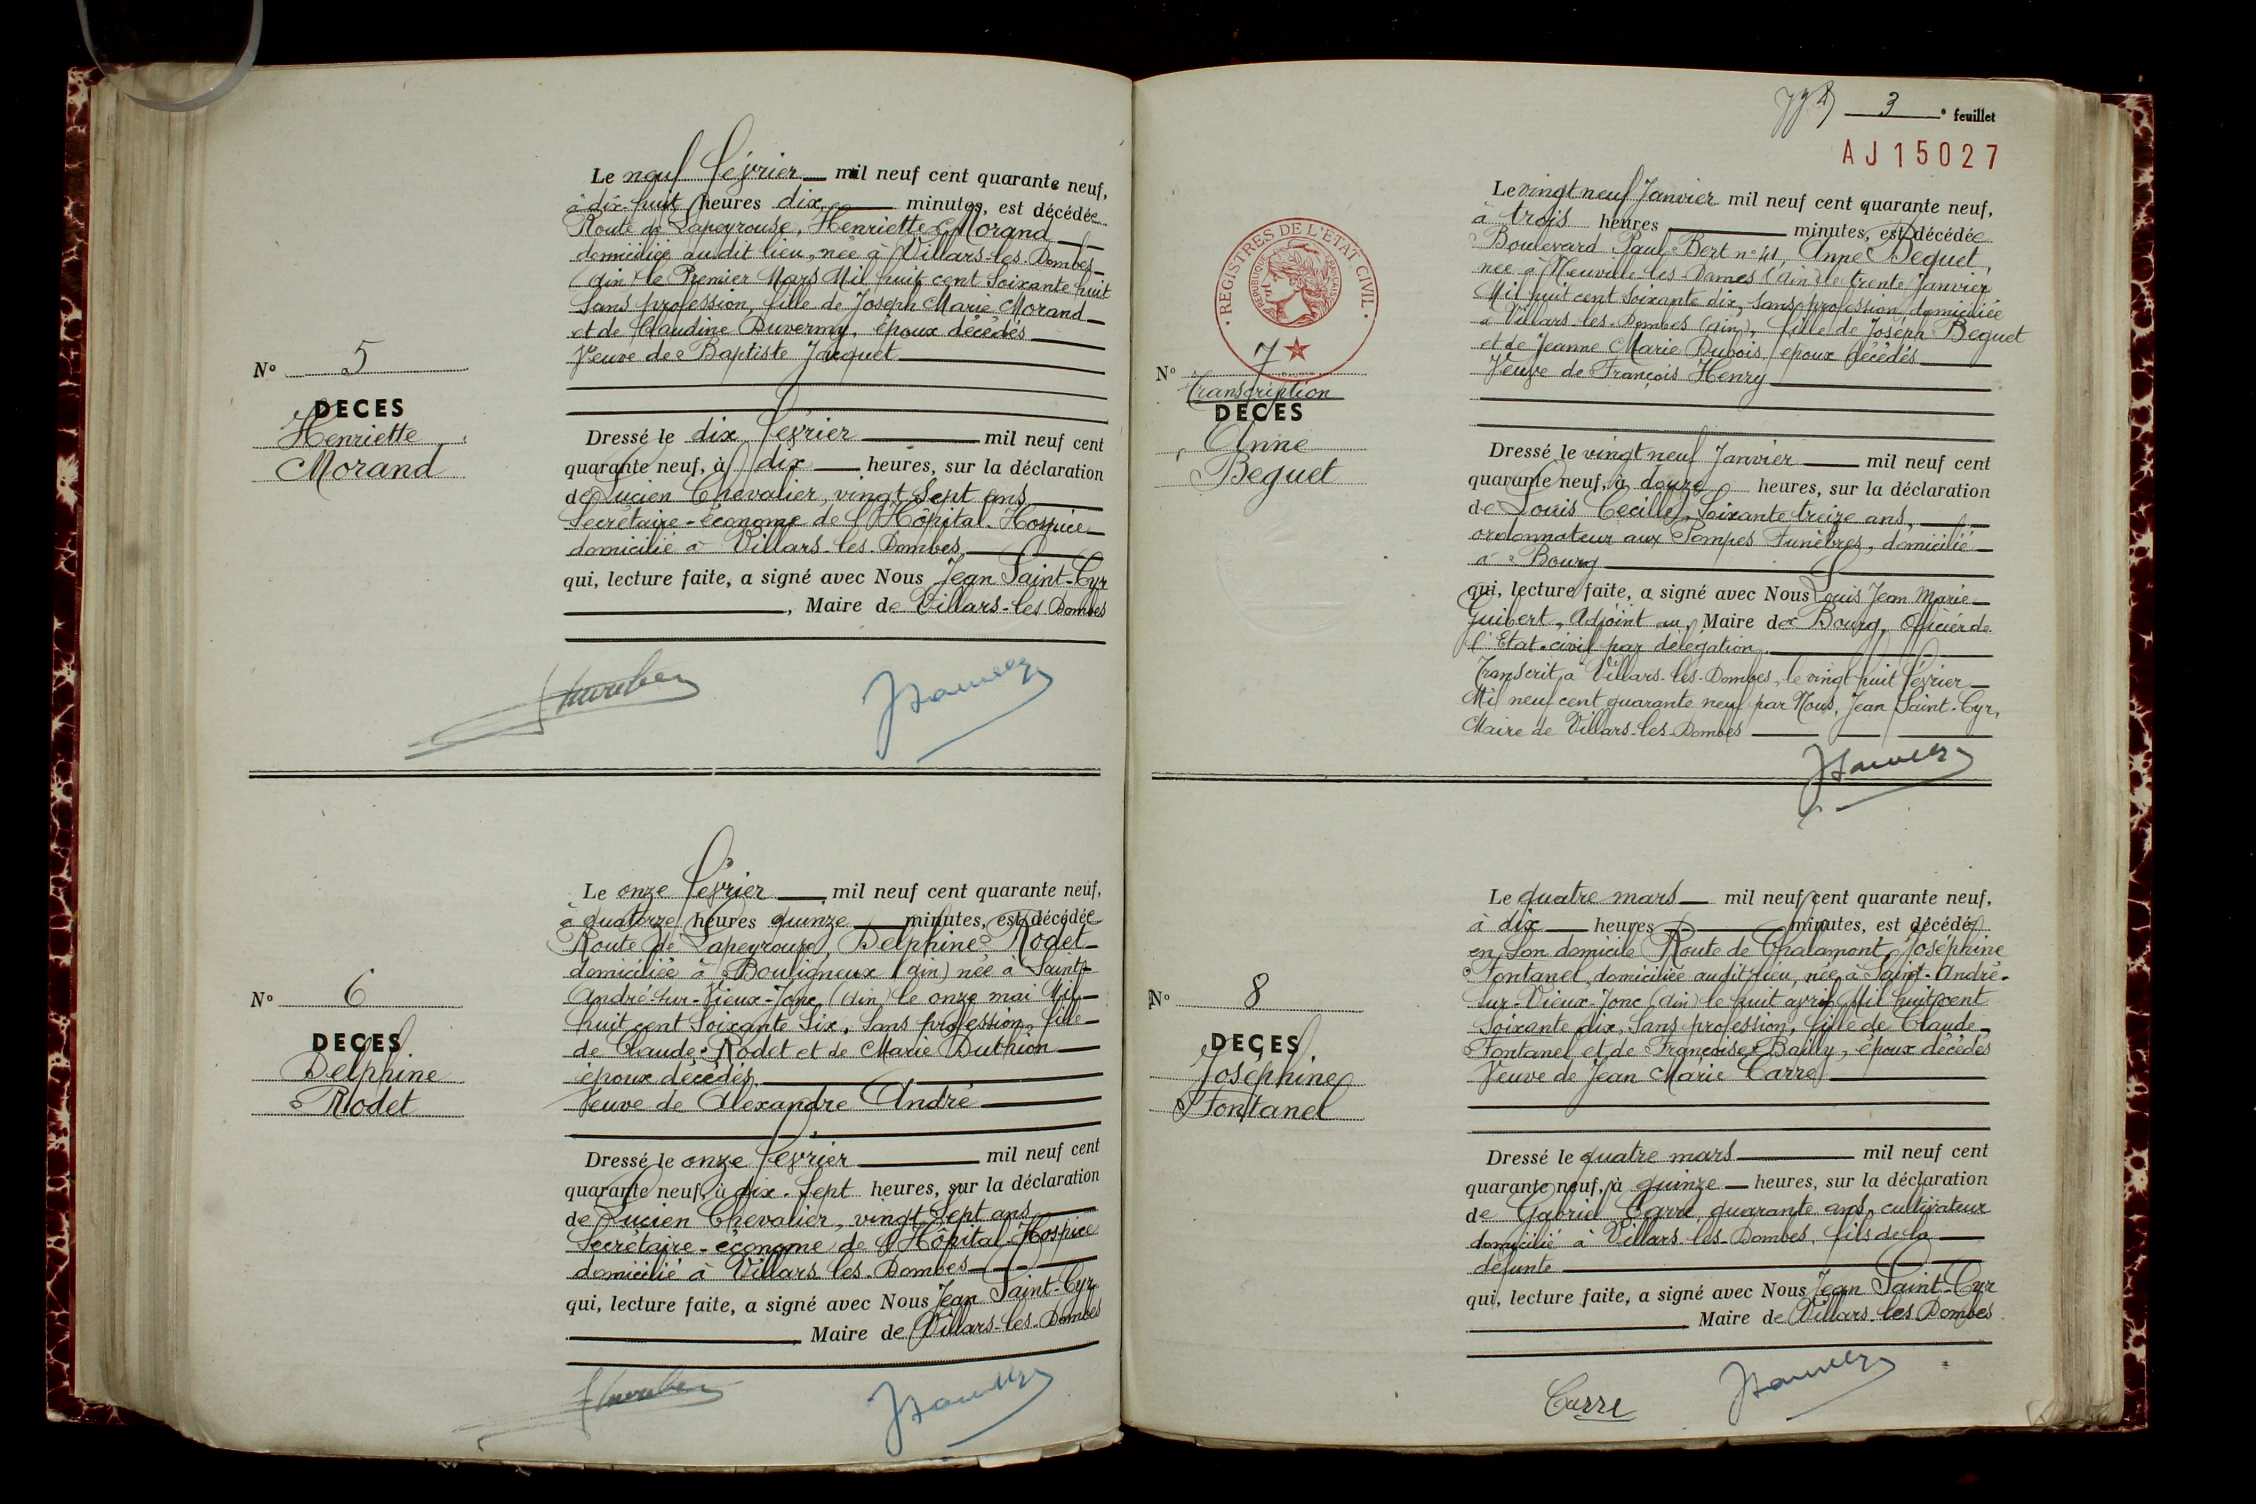 Le neuf février mil neuf cent quarante neuf,
à dix-huit heures dix minutes, est décédée
Route de Lapeyrouse, Henriette Morand
domiciliée au dit lieu, née à Villars-les-Dombes
(Ain) le Premier Mars Mil huit cent soixante huit
sans profession, fille de Joseph Marie Morand
et de Claudine Duvermy, époux décédés
Veuve de Baptiste Jacquet
N° 5
DECES
Henriette
Morand
Dressé le dix février mil neuf cent
quarante neuf, à dix heures, sur la déclaration
de Lucien Chevalier, vingt sept ans
Secrétaire-économe de l'Hôpital-Hospice
domicilié à Villars les Dombes,
qui, lecture faite, a signé avec Nous Jean Saint-Cyr
, Maire de Villars-les Dombes
Le onze février mil neuf cent quarante neuf,
à quatorze heures quinze minutes, est décédée
Route de Lapeyrouse, Delphine Rodet
domiciliée à Bouligneux (Ain) née à Saint-
André-sur-Vieux-Jonc (Ain) le onze mai Mil
huit cent soixante six, sans profession, fille
de Claude Rodet et de Marie Duthion
époux décédés,
Veuve de Alexandre André
N° 6
DECES
Delphine
Rodet
Dressé le onze février mil neuf cent
quarante neuf, à dix-sept heures, sur la déclaration
de Lucien Chevalier, vingt sept ans
Secrétaire-économe de l'Hôpital-Hospice
domicilié à Villars les Dombes
qui, lecture faite, a signé avec Nous Jean Saint-Cyr
, Maire de Villars-les-Dombes
3e feuillet
AJ15027
REGISTRES DE L'ETAT CIVIL
REPUBLIQUE FRANÇAISE
Le vingt neuf Janvier mil neuf cent quarante neuf,
à trois heures minutes, est décédée
Boulevard Paul Bert n° 41, Anne Beguet,
née à Neuville les Dames (Ain) le trente Janvier
Mil huit cent soixante dix, sans profession, domiciliée
à Villars les Dombes (Ain), fille de Joseph Beguet
et de Jeanne Marie Dubois, époux décédés
Veuve de François Henry
N° 7
Transcription
DECES
Anne
Beguet
Dressé le vingt neuf Janvier mil neuf cent
quarante neuf, à douze heures, sur la déclaration
de Louis Cécille, soixante treize ans,
ordonnateur aux Pompes Funèbres, domicilié
à Bourg
qui, lecture faite, a signé avec Nous Louis Jean Marie
Guibert, Adjoint au Maire de Bourg, Officier de
l'Etat-civil par délégation.
Transcrit à Villars-les-Dombes, le vingt huit février
Mil neuf cent quarante neuf par Nous, Jean Saint-Cyr,
Maire de Villars-les-Dombes
Le quatre mars mil neuf cent quarante neuf,
à dix heures minutes, est décédée
en son domicile Route de Chalamont, Joséphine
Fontanel, domiciliée audit lieu, née à Saint-André-
sur-Vieux-Jonc (Ain) le huit avril Mil huit cent
soixante dix, sans profession, fille de Claude
Fontanel et de Françoise Bailly, époux décédés
Veuve de Jean Marie Carré
N° 8
DECES
Joséphine
Fontanel
Dressé le quatre mars mil neuf cent
quarante neuf, à quinze heures, sur la déclaration
de Gabriel Carré, quarante ans, cultivateur
domicilié à Villars les Dombes, fils de la
défunte
qui, lecture faite, a signé avec Nous Jean Saint-Cyr
Maire de Villars-les Dombes
Carre